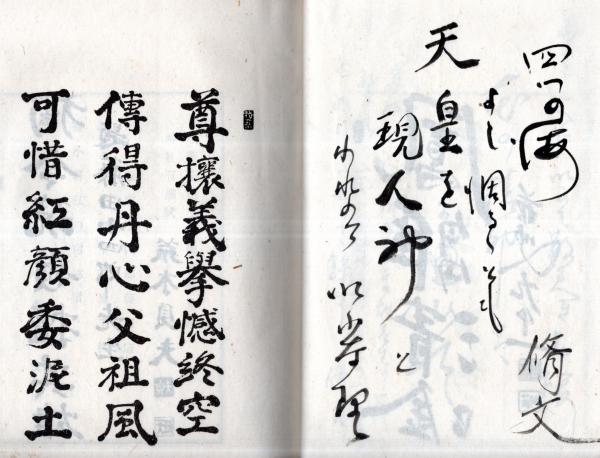 四つの海
よし涸るとも
脩文
天皇を
現人神と
尊攘義擧憾終空
傳得丹心父祖風
可惜紅顔委泥土